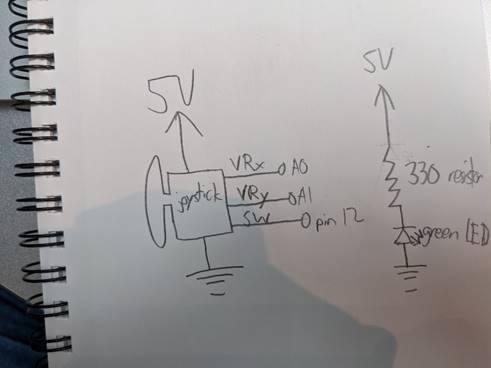 5V
joystick
VRx A0
VRy A1
SW pin 12
5V
330 resistor
green LED